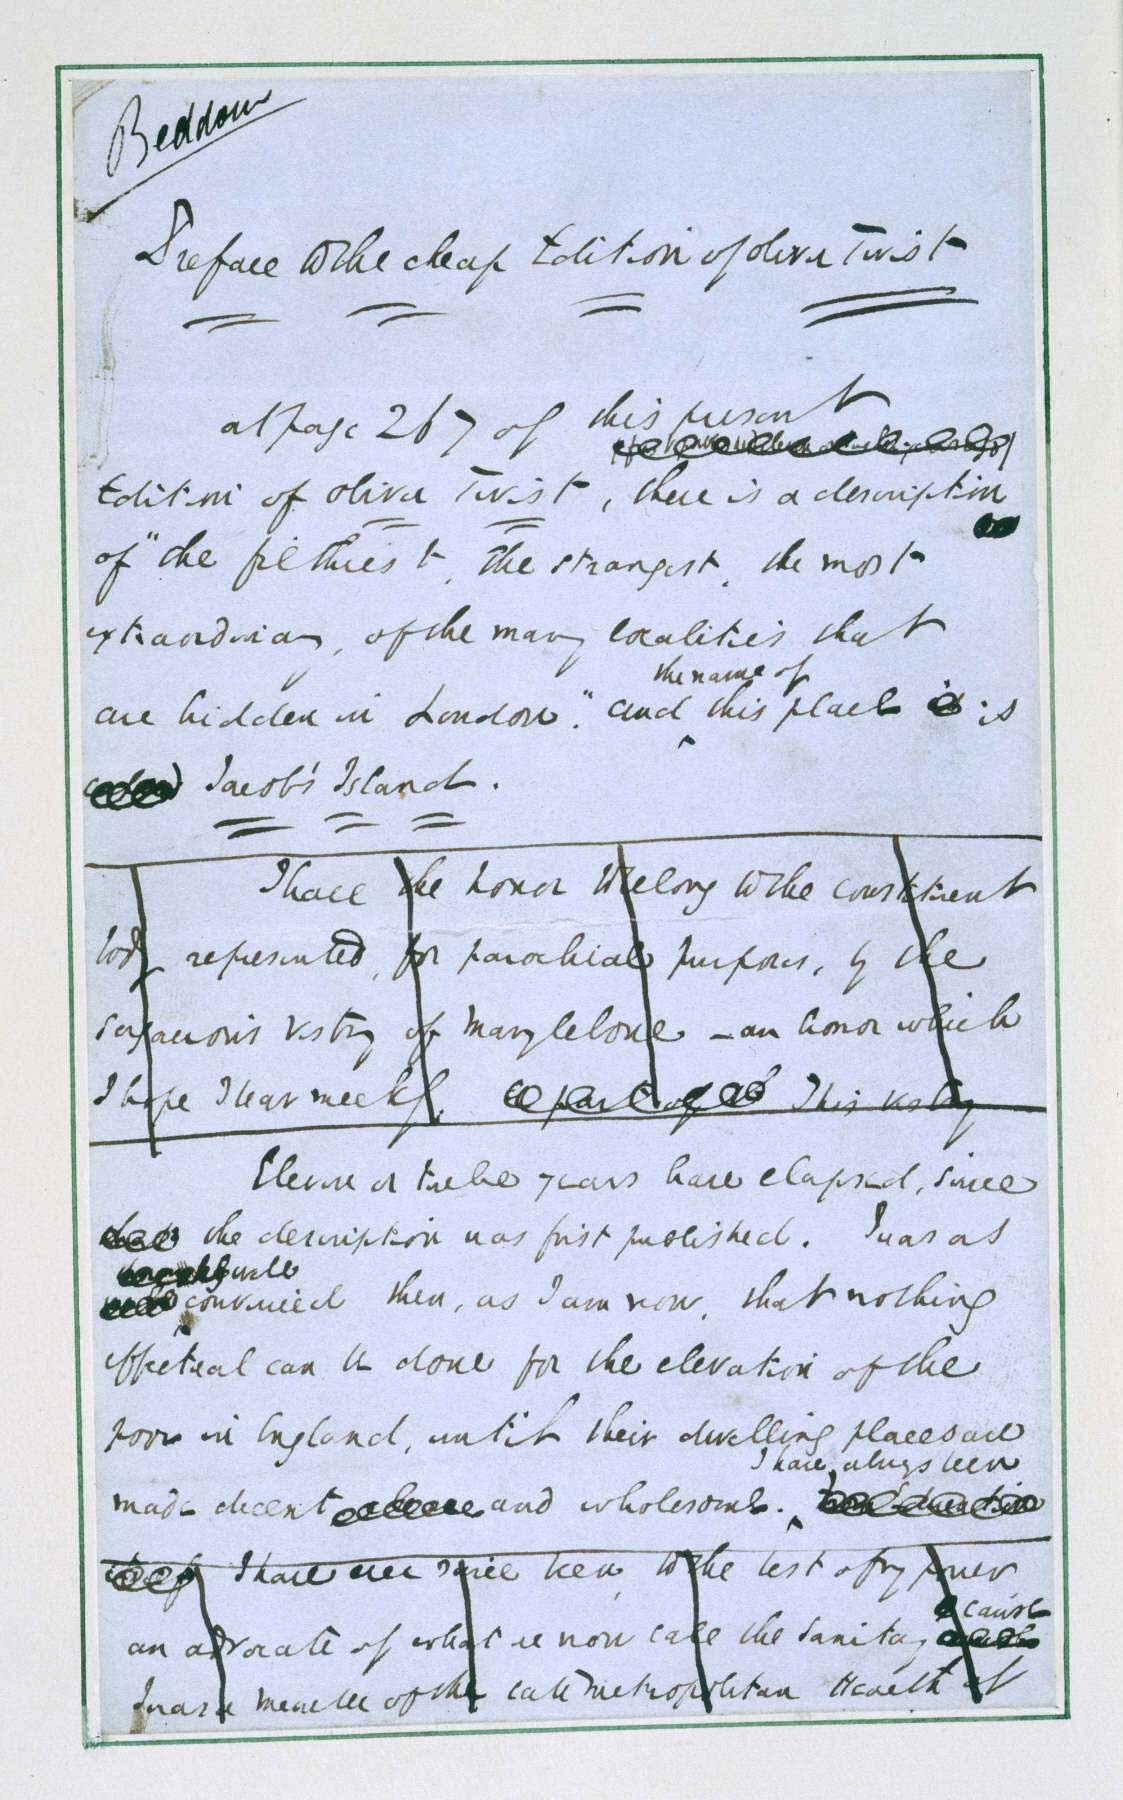 Beddow
Preface to the cheap Edition of Oliver Twist
At page 267 of this present
Edition of Oliver Twist, there is a description
of "the filthiest, the strangest, the most
extraordinary, of the many localities that
the name of
are hidden in London." And this place is
Jacob's Island.
I have the honor to belong to the constituent
body represented, for parochial purposes, by the
sagacious Vestry of Marylebone – an honor which
I hope I bear meekly. a part of This Vestry
Eleven or twelve years have elapsed, since
the description was first published. I was as
well
convinced then, as I am now, that nothing
effectual can be done for the elevation of the
poor in England, until their dwelling places are
I have always been
made decent and wholesome.
I have ever since been, to the best of my power
an advocate of what we now call the sanitary
cause
I was a member of the late Metropolitan Health of